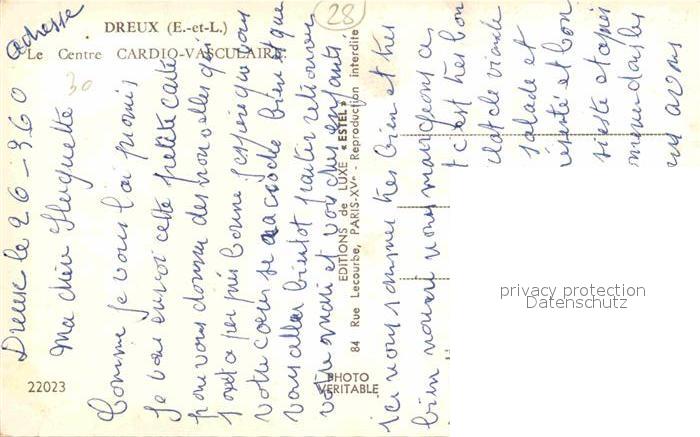 DREUX (E.-et-L.)
Le Centre CARDIO-VASCULAIRE
28
30
adresse
Dreux le 26-3.60
Ma chère Huguette
Comme je vous l'ai promis
Je vous envoi cette petite carte
pour vous donner des nouvelles qui
sont a peu près bonne j'espère que
votre course se bien et que
vous allez bientôt partir retrouver
votre mari et vos chers enfants
Ici nous sommes très bien et très
bien nourri nous mangeons a
c'est très bon
plat de viande
salade et
et bon
sieste et après
dans les
nous avons
EDITIONS de LUXE « ESTEL »
84 Rue Lecourbe, PARIS-XVe - Reproduction interdite
PHOTO
VERITABLE
22023
privacy protection
Datenschutz